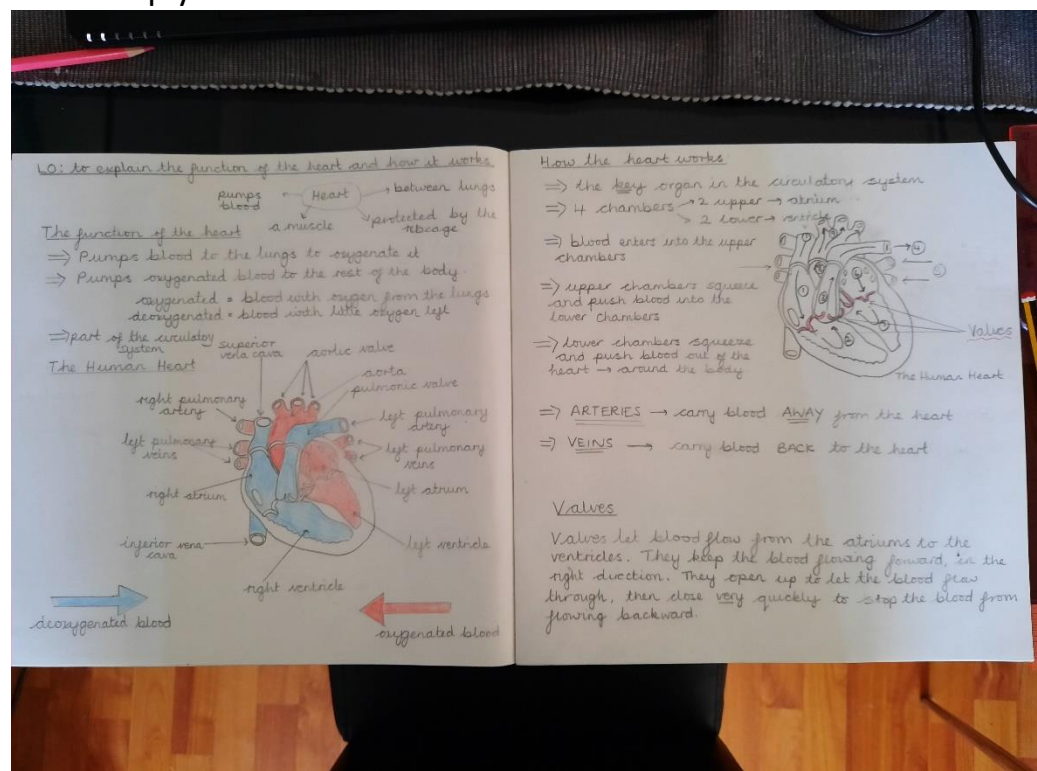 LO: to explain the function of the heart and how it works
pumps blood
Heart
between lungs
a muscle
protected by the ribcage
The function of the heart
⇒ Pumps blood to the lungs to oxygenate it
⇒ Pumps oxygenated blood to the rest of the body.
oxygenated = blood with oxygen from the lungs
deoxygenated = blood with little oxygen left
⇒ part of the circulatory system
The Human Heart
superior vena cava
aortic valve
aorta
pulmonic valve
right pulmonary artery
left pulmonary artery
left pulmonary veins
left pulmonary veins
right atrium
left atrium
inferior vena cava
left ventricle
right ventricle
deoxygenated blood
oxygenated blood
How the heart works
⇒ the key organ in the circulatory system
⇒ 4 chambers → 2 upper → atrium
→ 2 lower →
⇒ blood enters into the upper
chambers
⇒ upper chambers squeeze
and push blood into the
lower chambers
⇒ lower chambers squeeze
and push blood out of the
heart → around the body
Valves
The Human Heart
⇒ ARTERIES → carry blood AWAY from the heart
⇒ VEINS → carry blood BACK to the heart
Valves
Valves let blood flow from the atriums to the
ventricles. They keep the blood flowing forward, in the
right direction. They open up to let the blood flow
through, then close very quickly to stop the blood from
flowing backward.